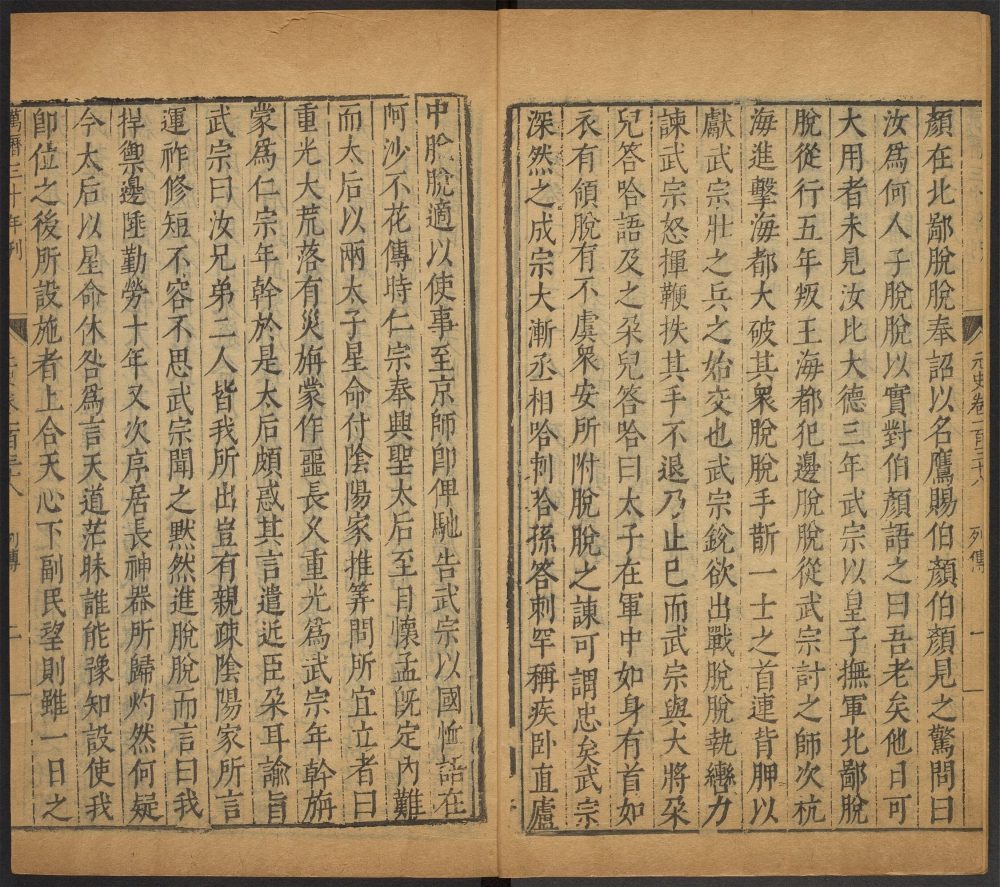 元史卷一百三十八 列傳 一
顏在北鄙脫脫奉詔以名鷹賜伯顏伯顏見之驚問曰
汝爲何人子脫脫以實對伯顏語之曰吾老矣他日可
大用者未見汝比大德三年武宗以皇子撫軍北鄙脫
脫從行五年叛王海都犯邊脫脫從武宗討之師次杭
海進擊海都大破其衆脫脫手斮一士之首連背胛以
獻武宗壯之兵之始交也武宗銳欲出戰脫脫執轡力
諫武宗怒揮鞭抶其手不退乃止已而武宗與大將朶
兒答哈語及之朶兒答哈曰太子在軍中如身有首如
衣有領脫有不虞衆安所附脫脫之諫可謂忠矣武宗
深然之成宗大漸丞相哈剌哈孫答刺罕稱疾卧直廬
中脫脫適以使事至京師卽俾馳告武宗以國恤語在
阿沙不花傳時仁宗奉興聖太后至自懷孟旣定內難
而太后以兩太子星命付陰陽家推筭問所宜立者曰
重光大荒落有災旃蒙作噩長久重光爲武宗年幹旃
蒙爲仁宗年幹於是太后頗惑其言遣近臣朶耳諭旨
武宗曰汝兄弟二人皆我所出豈有親疎陰陽家所言
運祚修短不容不思武宗聞之黙然進脫脫而言曰我
捍禦邊陲勤勞十年又次序居長神器所歸灼然何疑
今太后以星命休咎爲言天道茫昧誰能豫知設使我
卽位之後所設施者上合天心下副民望則雖一日之
萬曆三十年刊